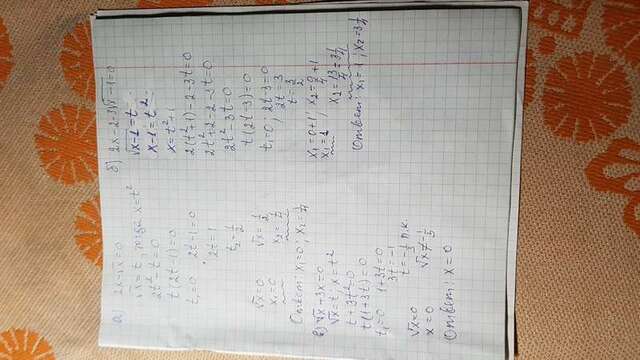 а) 2x-√x=0
√x=t, тогда x=t²
2t²-t=0
t(2t-1)=0
t₁=0 2t-1=0
2t=1
t₂=1/2
√x=0 √x=1/2
x₁=0 x₂=1/4
Ответ: x₁=0; x₂=1/4
в) √x+3x=0
√x=t; x=t²
t+3t²=0
t(1+3t)=0
t₁=0 1+3t=0
3t=-1
t=-1/3 п.к.
√x=0 √x≠-1/3
x=0
Ответ: x=0
б) 2x-2-3√x-1=0
√x-1=t
x-1=t²
x=t²+1
2(t²+1)-2-3t=0
2t²+2-2-3t=0
2t²-3t=0
t(2t-3)=0
t₁=0; 2t-3=0
2t=3
t=3/2
x₁=0+1; x₂=9/4+1
x₁=1; x₂=13/4=3 1/4
Ответ: x₁=1; x₂=3 1/4